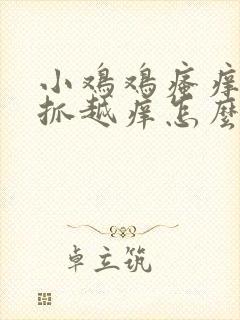 小鸡鸡瘙痒
抓越痒怎麼
卓立筑